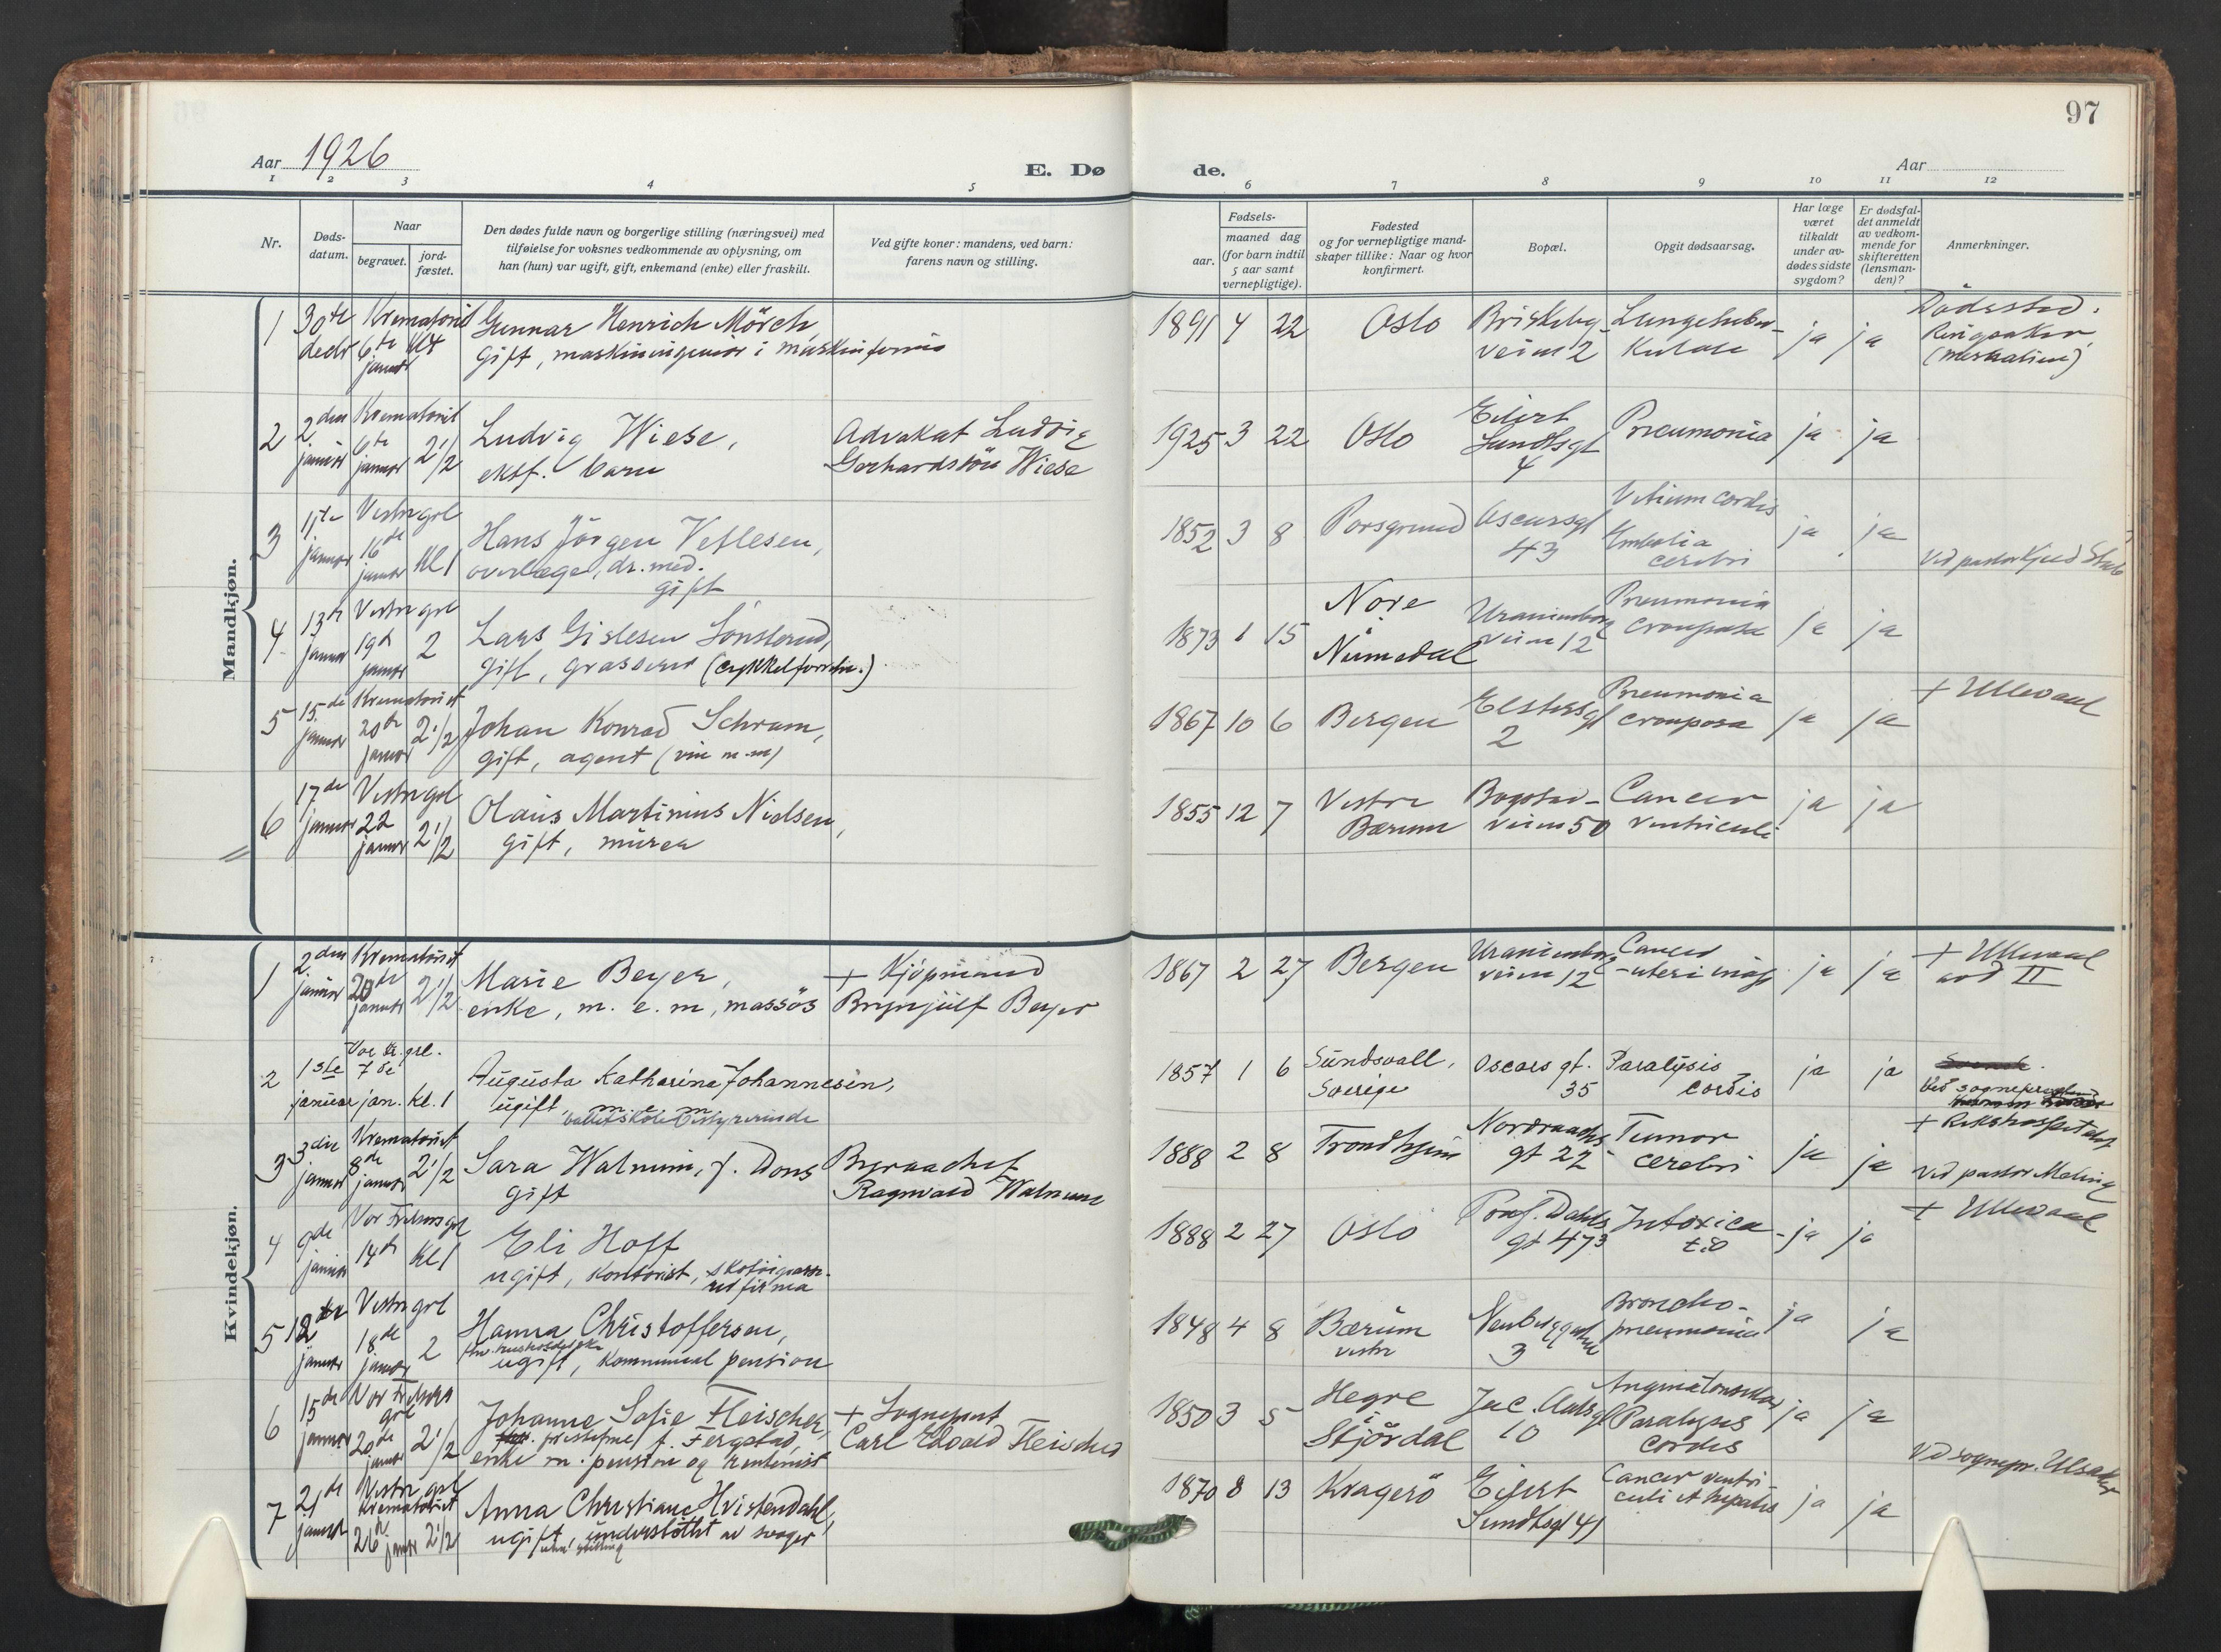 97
Aar 1926
E. Dø
de.
Aar
1 2 3 4 5 6 7 8 9 10 11 12
Nr.
Døds-
datum.
Naar
begravet.
jord-
fæstet.
Den dødes fulde navn og borgerlige stilling (næringsvei) med
tilføielse for voksnes vedkommende av oplysning, om
han (hun) var ugift, gift, enkemand (enke) eller fraskilt.
Ved gifte koner: mandens, ved barn:
farens navn og stilling.
Fødsels-
aar.
maaned dag
(for barn indtil
5 aar samt
vernepligtige).
Fødested
og for vernepligtige mand-
skaper tillike: Naar og hvor
konfirmert.
Bopæl.
Opgit dødsaarsag.
Har læge
været
tilkaldt
under av-
dødes sidste
sygdom?
Er dødsfal-
det anmeldt
av vedkom-
mende for
skifteretten
(lensman-
den)?
Anmerkninger.
Mandkjøn.
1 30te decbr Krematoriet 6te januar
Gunnar Henrich Mörch,
gift, maskiningeniör i maskinfirma
1891 4 22 Oslo Briskeby-
veien 2 Lungetuber-
kulose ja ja Dödssted:
Ringsaker
2 2den januar Krematoriet 6te januar 2 1/2
Ludvig Wiese,
ektf. barn
Advokat Ludvig
Gerhardsön Wiese
1925 3 22 Oslo Eilert
Sundtsgt
4 Pneumonia ja ja
3 11te januar Vestre grl 16de januar kl 1
Hans Jörgen Vetlesen,
overlæge, dr. med.
gift
1852 3 8 Porsgrund Oscarsgt
43 Vitium cordis
Embolia
cerebri ja ja
Ved pastor
4 13de januar Vestre grl 19de januar 2
Lars Gislesen Sönsterud,
gift, grosserer (cykkelforretn.)
1873 1 15 Nore
i
Numedal Uranienborg
veien 12 Pneumonia
crouposa ja ja
5 15de januar Krematoriet 20de januar 2 1/2
Johan Konrad Schram,
gift, agent (vin m.m)
1867 10 6 Bergen Elstersgt
2 Pneumonia
crouposa ja ja + Ullevaal
6 17de januar Vestre grl 22 januar 2 1/2
Olaus Martinius Nielsen,
gift, murer
1855 12 7 Vestre
Bærum Bogstad-
veien 50 Cancer
ventriculi ja ja
Kvindekjøn.
1 2den januar Krematoriet 20de januar 2 1/2
Marie Beyer,
enke, m. e. m, massös
+ Kjöpmand
Brynjulf Beyer
1867 2 27 Bergen Uranienborg
veien 12 Cancer
uteri ja ja + Ullevaal
avd II
2 1ste januar Vor Fr. grl. 7de jan. kl. 1
Augusta Katharina Johannesen,
ugift, m. e. m
balletskolebestyrerinde
1857 1 6 Sundsvall,
Sverige Oscars gt.
35 Paralysis
cordis ja ja
Ved sogneprest
3 3die januar Krematoriet 8de januar 2 1/2
Sara Walnum, f. Dons
gift
Byraachef
Ragnvald Walnum
1888 2 8 Trondhjem Nordraachs
gt 22 Tumor
cerebri ja ja + Rikshospitalet
Ved pastor Meling
4 9de januar Vor Frelsers grl 14de kl 1
Eli Hoff
ugift, kontorist,
1888 2 27 Oslo Prof. Dahls
gt 47 Intoxica-
tio ja ja + Ullevaal
5 12te januar Vestre grl 18de januar 2
Hanna Christoffersen,
ugift, kommunal pension
1848 4 8 Bærum
vestre Neuberggaten
3 Broncho-
pneumonia ja ja
6 15de januar Vor Frelsers grl 20de januar 2 1/2
Johanne Sofie Fleischer,
f. Fergstad,
enke m. pension og rentenist
+ Sogneprest
Carl Edvald Fleischer
1850 3 5 Hegre
i
Stjördal Jac. Aalls gt
10 Angina tonsillar
Paralysis
cordis ja ja
7 21de januar Vestre grl
Krematoriet 26de januar 2 1/2
Anna Christiane Hvistendahl,
ugift, understöttet av svoger
uten stilling
1870 8 13 Kragerö Eilert
Sundtsgt 41 Cancer ventri-
culi et hepatis ja ja
Ved sognepr. Ulsaker